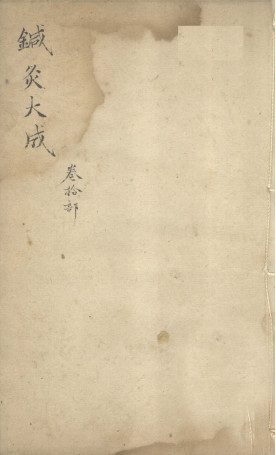 鍼灸大成
卷拾部